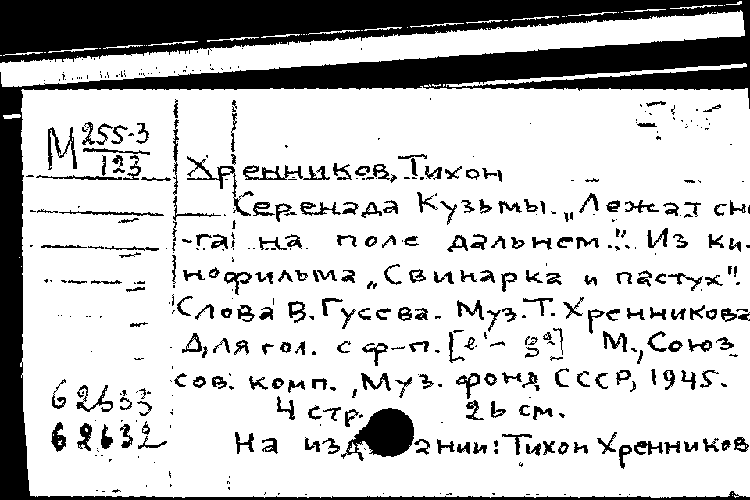 М 255-3
123
Хренников, Тихон
Серенада Кузьмы. „Лежат сне
-га на поле дальнем.". Из ки-
нофильма „Свинарка и пастух".
Слова В. Гусева. Муз. Т. Хренникова
Для гол. с ф-п. [e'- g²] М., Союз
сов. комп., Муз. фонд СССР, 1945.
62633
4 стр. 26 см.
62632
На изд ании: Тихон Хренников